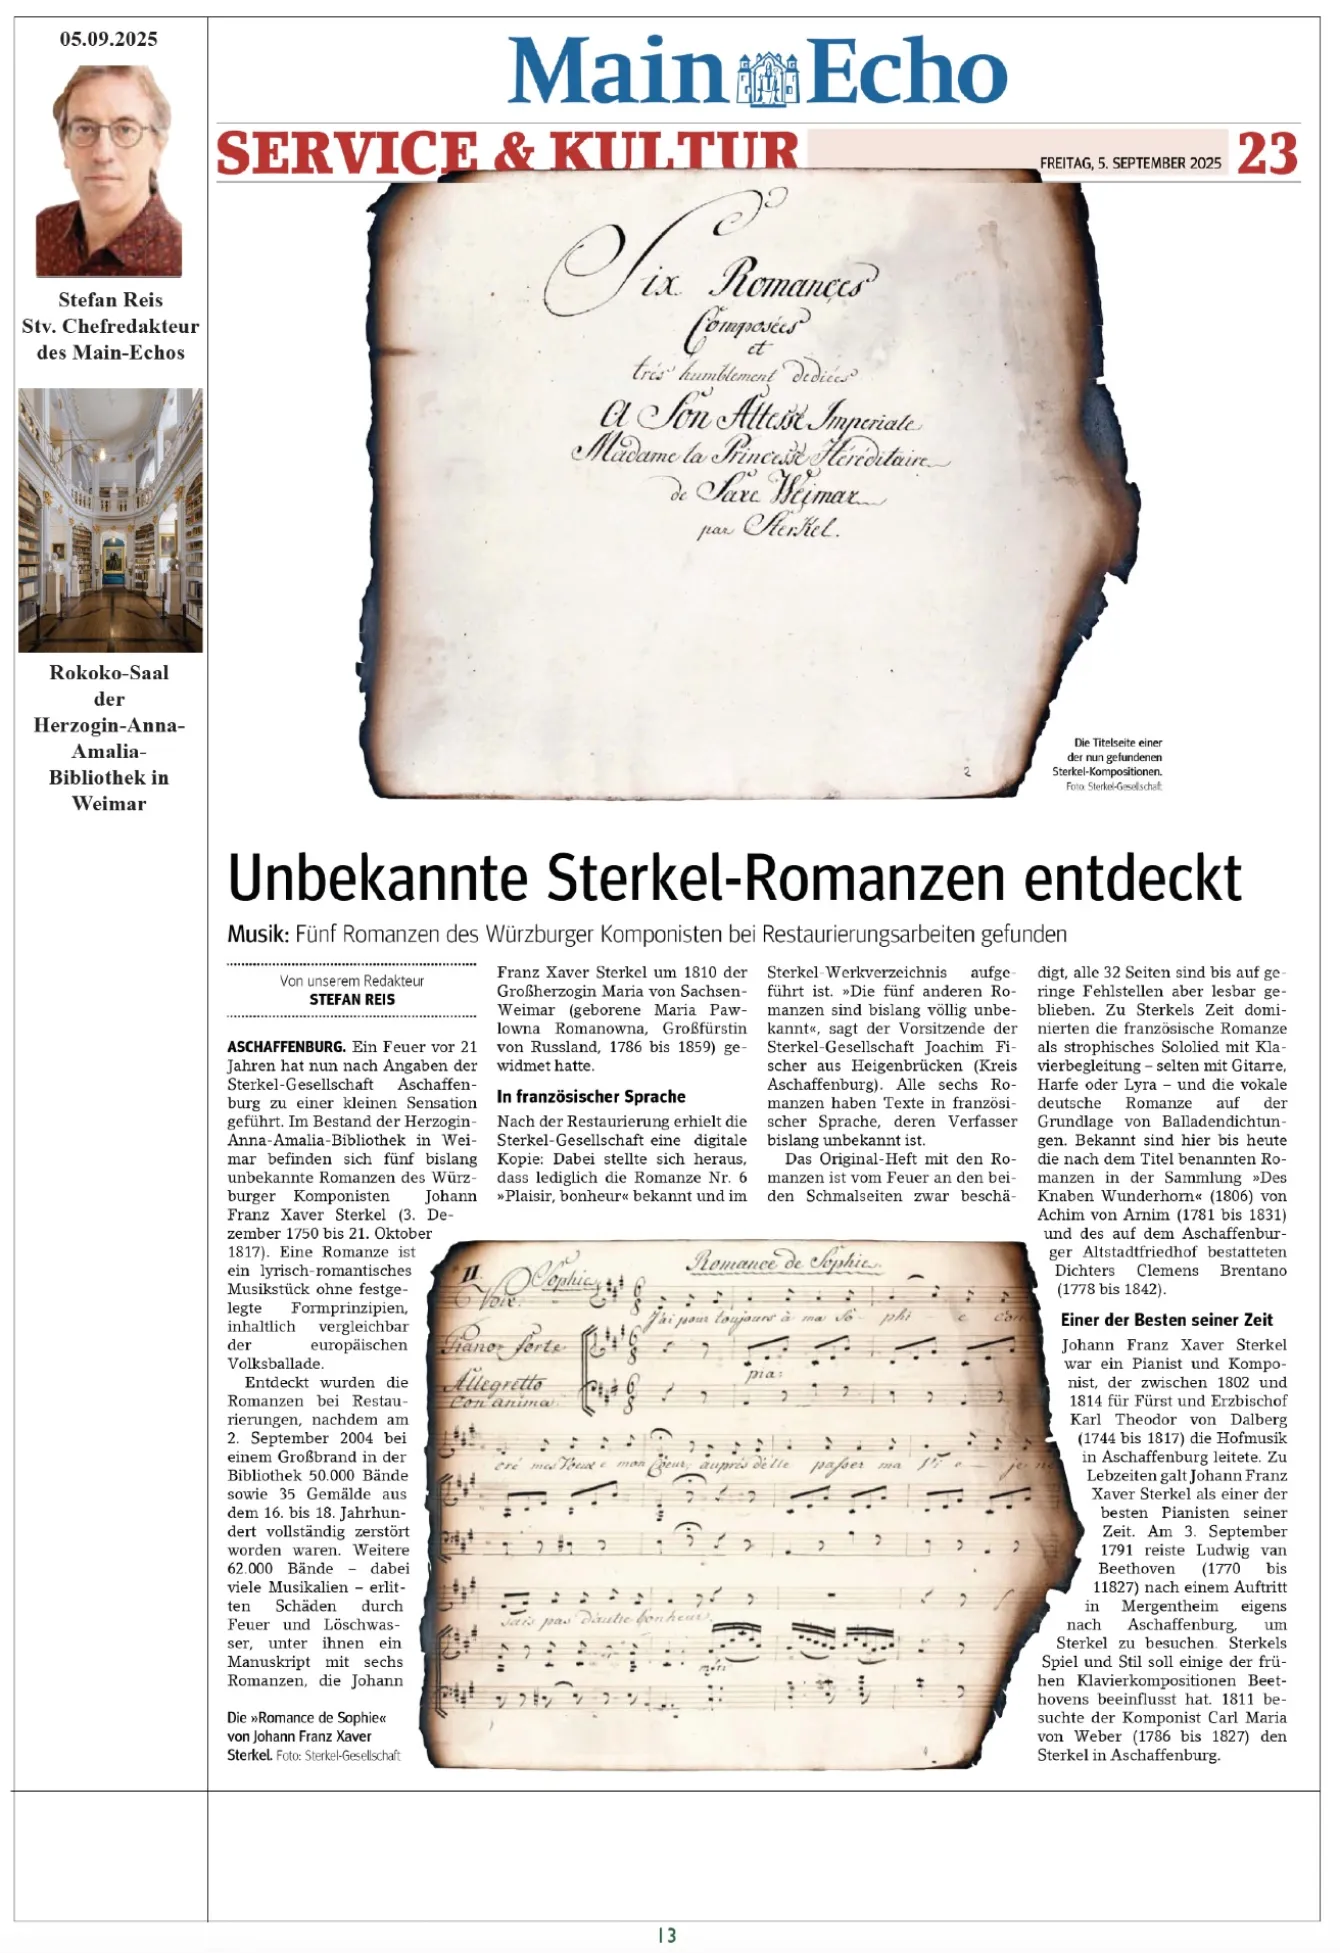 05.09.2025
Stefan Reis
Stv. Chefredakteur
des Main-Echos
Rokoko-Saal
der
Herzogin-Anna-
Amalia-
Bibliothek in
Weimar
Main Echo
SERVICE & KULTUR
FREITAG, 5. SEPTEMBER 2025 23
Six Romances
Composées
et
trés humblement dediées
A Son Altesse Imperiale
Madame la Princesse Héréditaire
de Saxe Weimar
par Sterkel.
2
Die Titelseite einer
der nun gefundenen
Sterkel-Kompositionen.
Foto: Sterkel-Gesellschaft
Unbekannte Sterkel-Romanzen entdeckt
Musik: Fünf Romanzen des Würzburger Komponisten bei Restaurierungsarbeiten gefunden
Von unserem Redakteur
STEFAN REIS
ASCHAFFENBURG. Ein Feuer vor 21
Jahren hat nun nach Angaben der
Sterkel-Gesellschaft Aschaffen-
burg zu einer kleinen Sensation
geführt. Im Bestand der Herzogin-
Anna-Amalia-Bibliothek in Wei-
mar befinden sich fünf bislang
unbekannte Romanzen des Würz-
burger Komponisten Johann
Franz Xaver Sterkel (3. De-
zember 1750 bis 21. Oktober
1817). Eine Romanze ist
ein lyrisch-romantisches
Musikstück ohne festge-
legte Formprinzipien,
inhaltlich vergleichbar
der europäischen
Volksballade.
Entdeckt wurden die
Romanzen bei Restau-
rierungen, nachdem am
2. September 2004 bei
einem Großbrand in der
Bibliothek 50.000 Bände
sowie 35 Gemälde aus
dem 16. bis 18. Jahrhun-
dert vollständig zerstört
worden waren. Weitere
62.000 Bände – dabei
viele Musikalien – erlit-
ten Schäden durch
Feuer und Löschwas-
ser, unter ihnen ein
Manuskript mit sechs
Romanzen, die Johann
Franz Xaver Sterkel um 1810 der
Großherzogin Maria von Sachsen-
Weimar (geborene Maria Paw-
lowna Romanowna, Großfürstin
von Russland, 1786 bis 1859) ge-
widmet hatte.
In französischer Sprache
Nach der Restaurierung erhielt die
Sterkel-Gesellschaft eine digitale
Kopie: Dabei stellte sich heraus,
dass lediglich die Romanze Nr. 6
»Plaisir, bonheur« bekannt und im
Sterkel-Werkverzeichnis aufge-
führt ist. »Die fünf anderen Ro-
manzen sind bislang völlig unbe-
kannt«, sagt der Vorsitzende der
Sterkel-Gesellschaft Joachim Fi-
scher aus Heigenbrücken (Kreis
Aschaffenburg). Alle sechs Ro-
manzen haben Texte in französi-
scher Sprache, deren Verfasser
bislang unbekannt ist.
Das Original-Heft mit den Ro-
manzen ist vom Feuer an den bei-
den Schmalseiten zwar beschä-
digt, alle 32 Seiten sind bis auf ge-
ringe Fehlstellen aber lesbar ge-
blieben. Zu Sterkels Zeit domi-
nierten die französische Romanze
als strophisches Sololied mit Kla-
vierbegleitung – selten mit Gitarre,
Harfe oder Lyra – und die vokale
deutsche Romanze auf der
Grundlage von Balladendichtun-
gen. Bekannt sind hier bis heute
die nach dem Titel benannten Ro-
manzen in der Sammlung »Des
Knaben Wunderhorn« (1806) von
Achim von Arnim (1781 bis 1831)
und des auf dem Aschaffenbur-
ger Altstadtfriedhof bestatteten
Dichters Clemens Brentano
(1778 bis 1842).
Einer der Besten seiner Zeit
Johann Franz Xaver Sterkel
war ein Pianist und Kompo-
nist, der zwischen 1802 und
1814 für Fürst und Erzbischof
Karl Theodor von Dalberg
(1744 bis 1817) die Hofmusik
in Aschaffenburg leitete. Zu
Lebzeiten galt Johann Franz
Xaver Sterkel als einer der
besten Pianisten seiner
Zeit. Am 3. September
1791 reiste Ludwig van
Beethoven (1770 bis
11827) nach einem Auftritt
in Mergentheim eigens
nach Aschaffenburg, um
Sterkel zu besuchen. Sterkels
Spiel und Stil soll einige der frü-
hen Klavierkompositionen Beet-
hovens beeinflusst hat. 1811 be-
suchte der Komponist Carl Maria
von Weber (1786 bis 1827) den
Sterkel in Aschaffenburg.
II. Romance de Sophie
Sophie
Voix.
J'ai pour toujours à ma So- phi e con
Piano forte
pia:
Allegretto
con anima
mon Coeur, auprès d'elle passer ma Vi e
sais pas d'autre bonheur.
Die »Romance de Sophie«
von Johann Franz Xaver
Sterkel. Foto: Sterkel-Gesellschaft
13